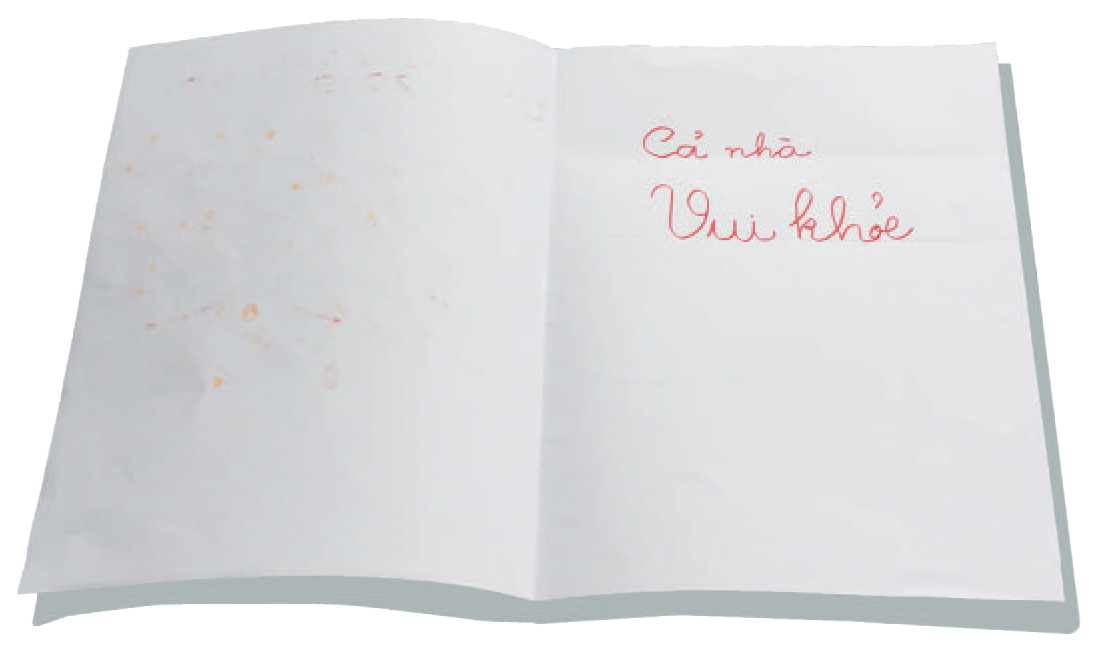 Cả nhà
Vui khỏe